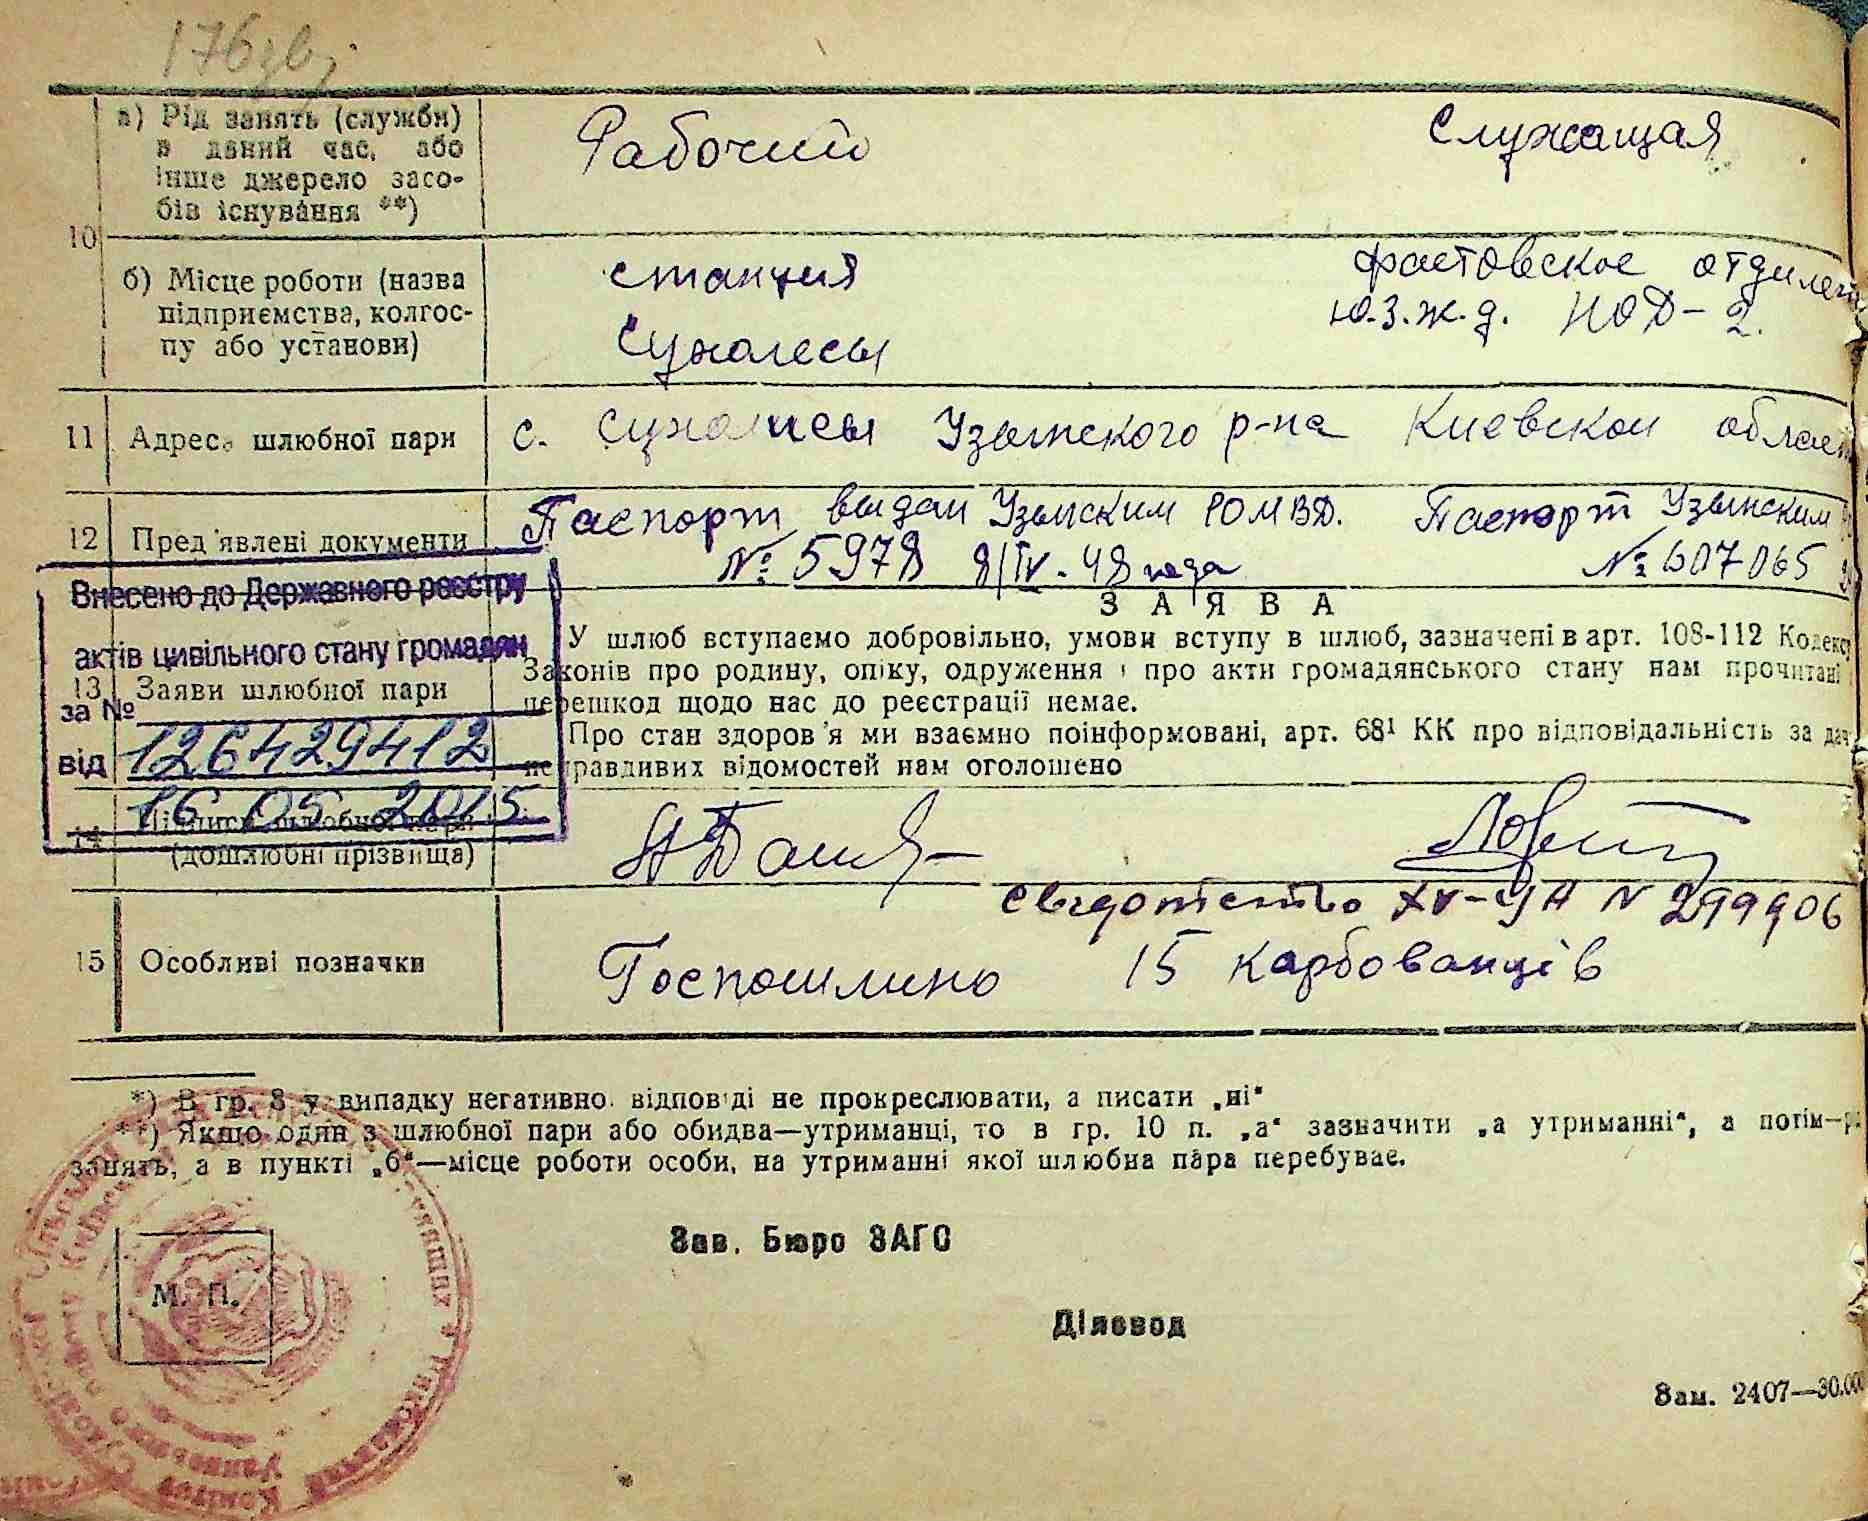 176зв
а) Рід занять (служби) в даний час, або інше джерело засобів існування **)
Рабочий
Служащая
10
б) Місце роботи (назва підприємства, колгоспу або установи)
станция
Сухолесы
фастовское отделен
Ю.З.Ж.Д. НОД-2.
11 Адреса шлюбної пари
с. Сухолисы Узынского р-на Киевской област
12 Пред'явлені документи
Паспорт выдан Узынским РОМВД.
№ 5978 8/IV-48 года
Паспорт Узынским
№ 607065
Внесено до Державного реєстру
актів цивільного стану громадян
за №
126429412
від
16 05 2015
З А Я В А
13 Заяви шлюбної пари
У шлюб вступаємо добровільно, умови вступу в шлюб, зазначені в арт. 108-112 Кодексу
Законів про родину, опіку, одруження і про акти громадянського стану нам прочитані
перешкод щодо нас до реєстрації немає.
Про стан здоров'я ми взаємно поінформовані, арт. 68¹ КК про відповідальність за дач
неправдивих відомостей нам оголошено
14 Підписи шлюбної пари
(дошлюбні прізвища)
свидотство XV-УН N 299906
15 Особливі позначки
Госпошлино 15 карбованців
*) В гр. 8 у випадку негативно. відповіді не прокреслювати, а писати „ні“
**) Якщо один з шлюбної пари або обидва—утриманці, то в гр. 10 п. „а“ зазначити „а утриманні“, а потім—р
занять, а в пункті „б“—місце роботи особи, на утриманні якої шлюбна пара перебуває.
Зав. Бюро ЗАГС
М. П.
Діловод
Зам. 2407—30.000